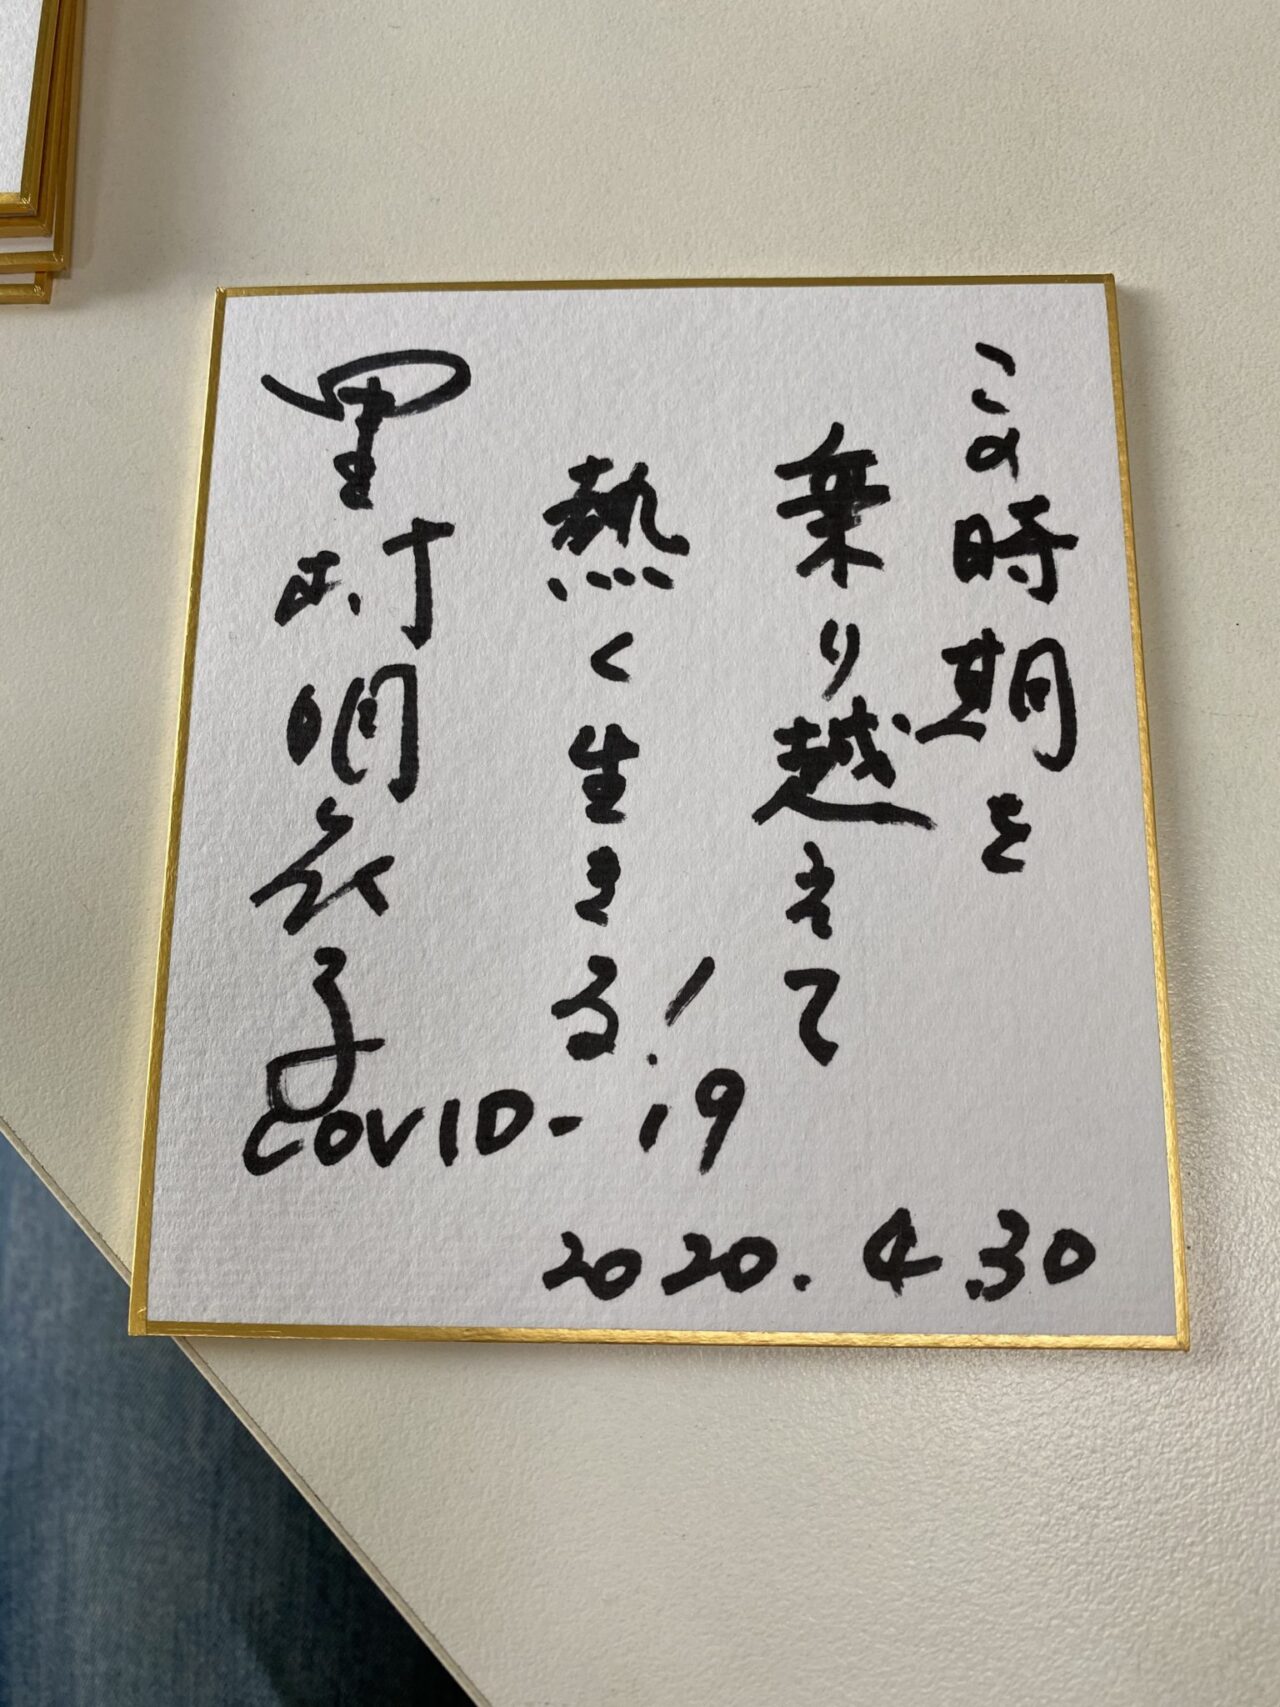 この時期を
乗り越えて
熱く生きる!
里村明衣子
COVID-19
2020.4.30